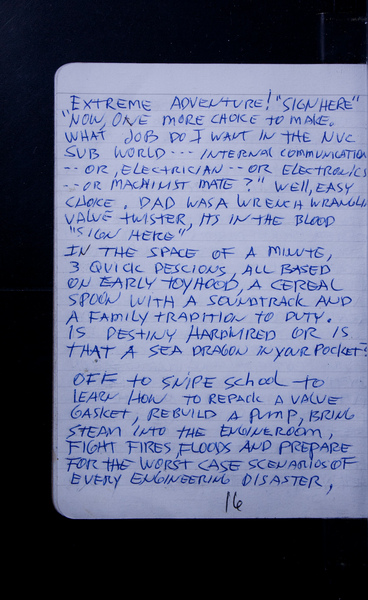 "EXTREME ADVENTURE! "SIGN HERE"
"NOW, ONE MORE CHOICE TO MAKE.
WHAT JOB DO I WANT IN THE NUC
SUB WORLD --- INTERNAL COMMUNICATION
-- OR, ELECTRICIAN -- OR ELECTRONICS
-- OR MACHINIST MATE?" WELL, EASY
CHOICE, DAD WAS A WRENCH WRANGLIN
VALVE TWISTER, ITS IN THE BLOOD
"SIGN HERE"
IN THE SPACE OF A MINUTE,
3 QUICK DESCIONS, ALL BASED
ON EARLY TOYHOOD, A CEREAL
SPOON WITH A SOUNDTRACK AND
A FAMILY TRADITION TO DUTY.
IS DESTINY HARDWIRED OR IS
THAT A SEA DRAGON IN YOUR POCKET?
OFF TO SNIPE SCHOOL TO
LEARN HOW TO REPACK A VALVE
GASKET, REBUILD A PUMP, BRING
STEAM INTO THE ENGINEROOM,
FIGHT FIRES, FLOODS AND PREPARE
FOR THE WORST CASE SCENARIOS OF
EVERY ENGINEERING DISASTER,
16